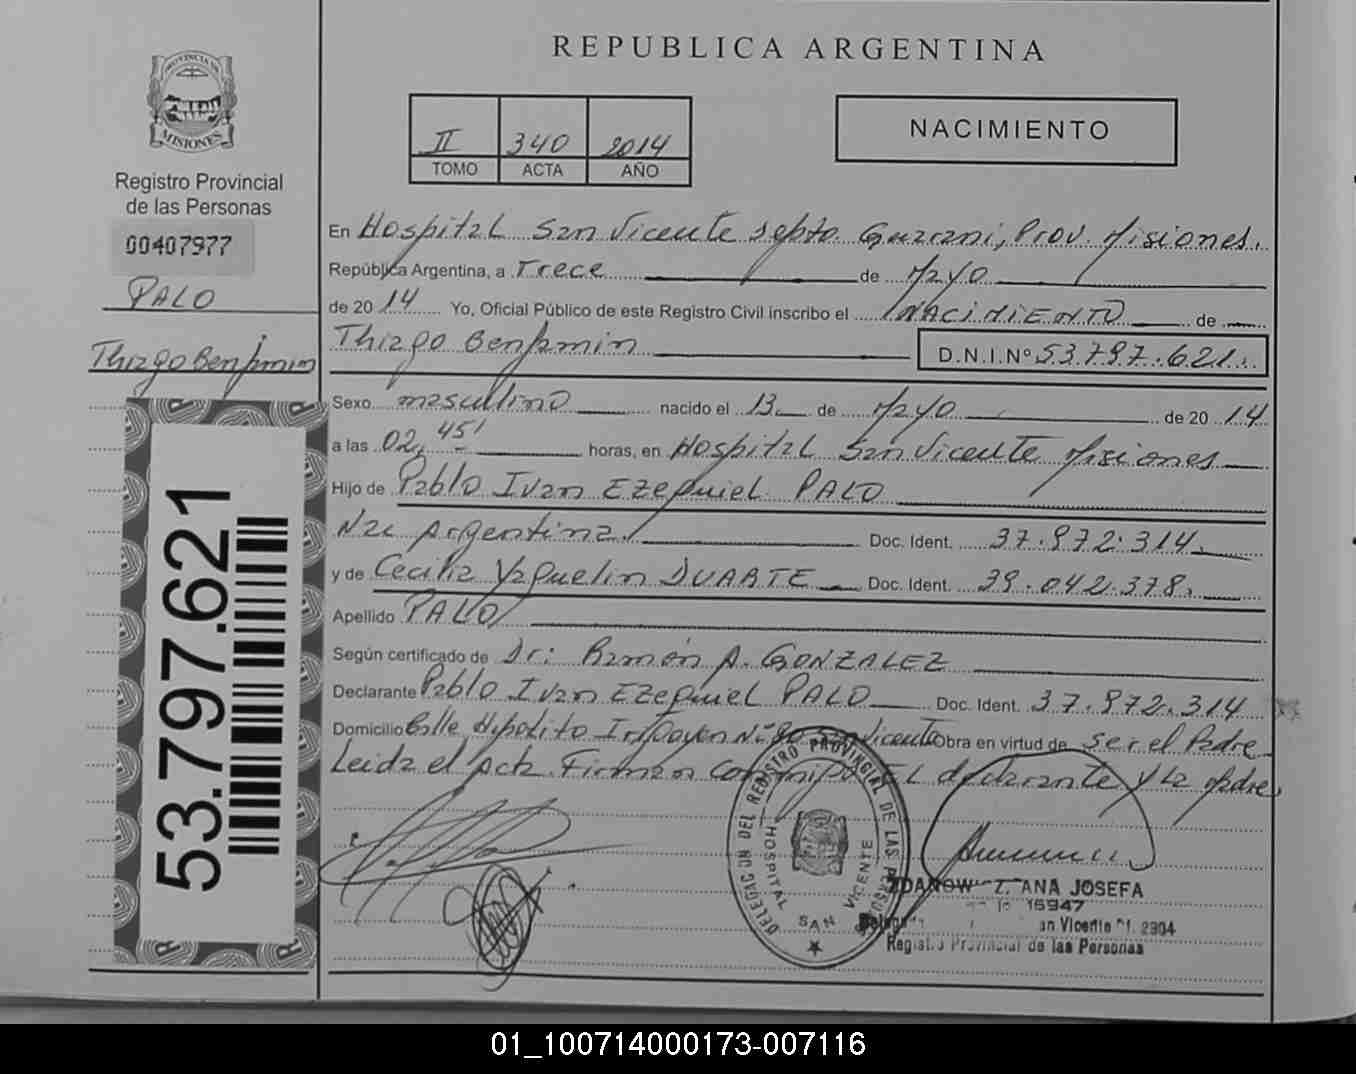 PROVINCIA DE
MISIONES
Registro Provincial
de las Personas
00407977
PALO
Thiago Benjamin
53.797.621
REPUBLICA ARGENTINA
II 340 2014
TOMO ACTA AÑO
NACIMIENTO
En Hospital San Vicente Depto. Guarani, Prov. Misiones.
República Argentina, a Trece de Mayo
de 2014 Yo, Oficial Público de este Registro Civil inscribo el NACIMIENTO de
Thiago Benjamin D.N.I.Nº 53.797.621.
Sexo masculino nacido el 13 de Mayo de 2014
a las 02,45' horas, en Hospital San Vicente Misiones
Hijo de Pablo Ivan Ezequiel PALO
Nac Argentina. Doc. Ident. 37.972.314
y de Cecilia Yaquelin DUARTE Doc. Ident. 39.042.378.
Apellido PALO
Según certificado de Dr: Ramón A. GONZALEZ
Declarante Pablo Ivan Ezequiel PALO Doc. Ident. 37.972.314
Domicilio Calle Hypolito Irigoyen Nº 80 San Vicente Obra en virtud de ser el Padre
Leida el Acta. Firman conmigo el declarante y la Madre
DELEGACION DEL REGISTRO PROVINCIAL DE LAS PERSONAS
HOSPITAL SAN VICENTE
ANA JOSEFA
16947
an Vicente 2904
Registro Provincial de las Personas
01_100714000173-007116